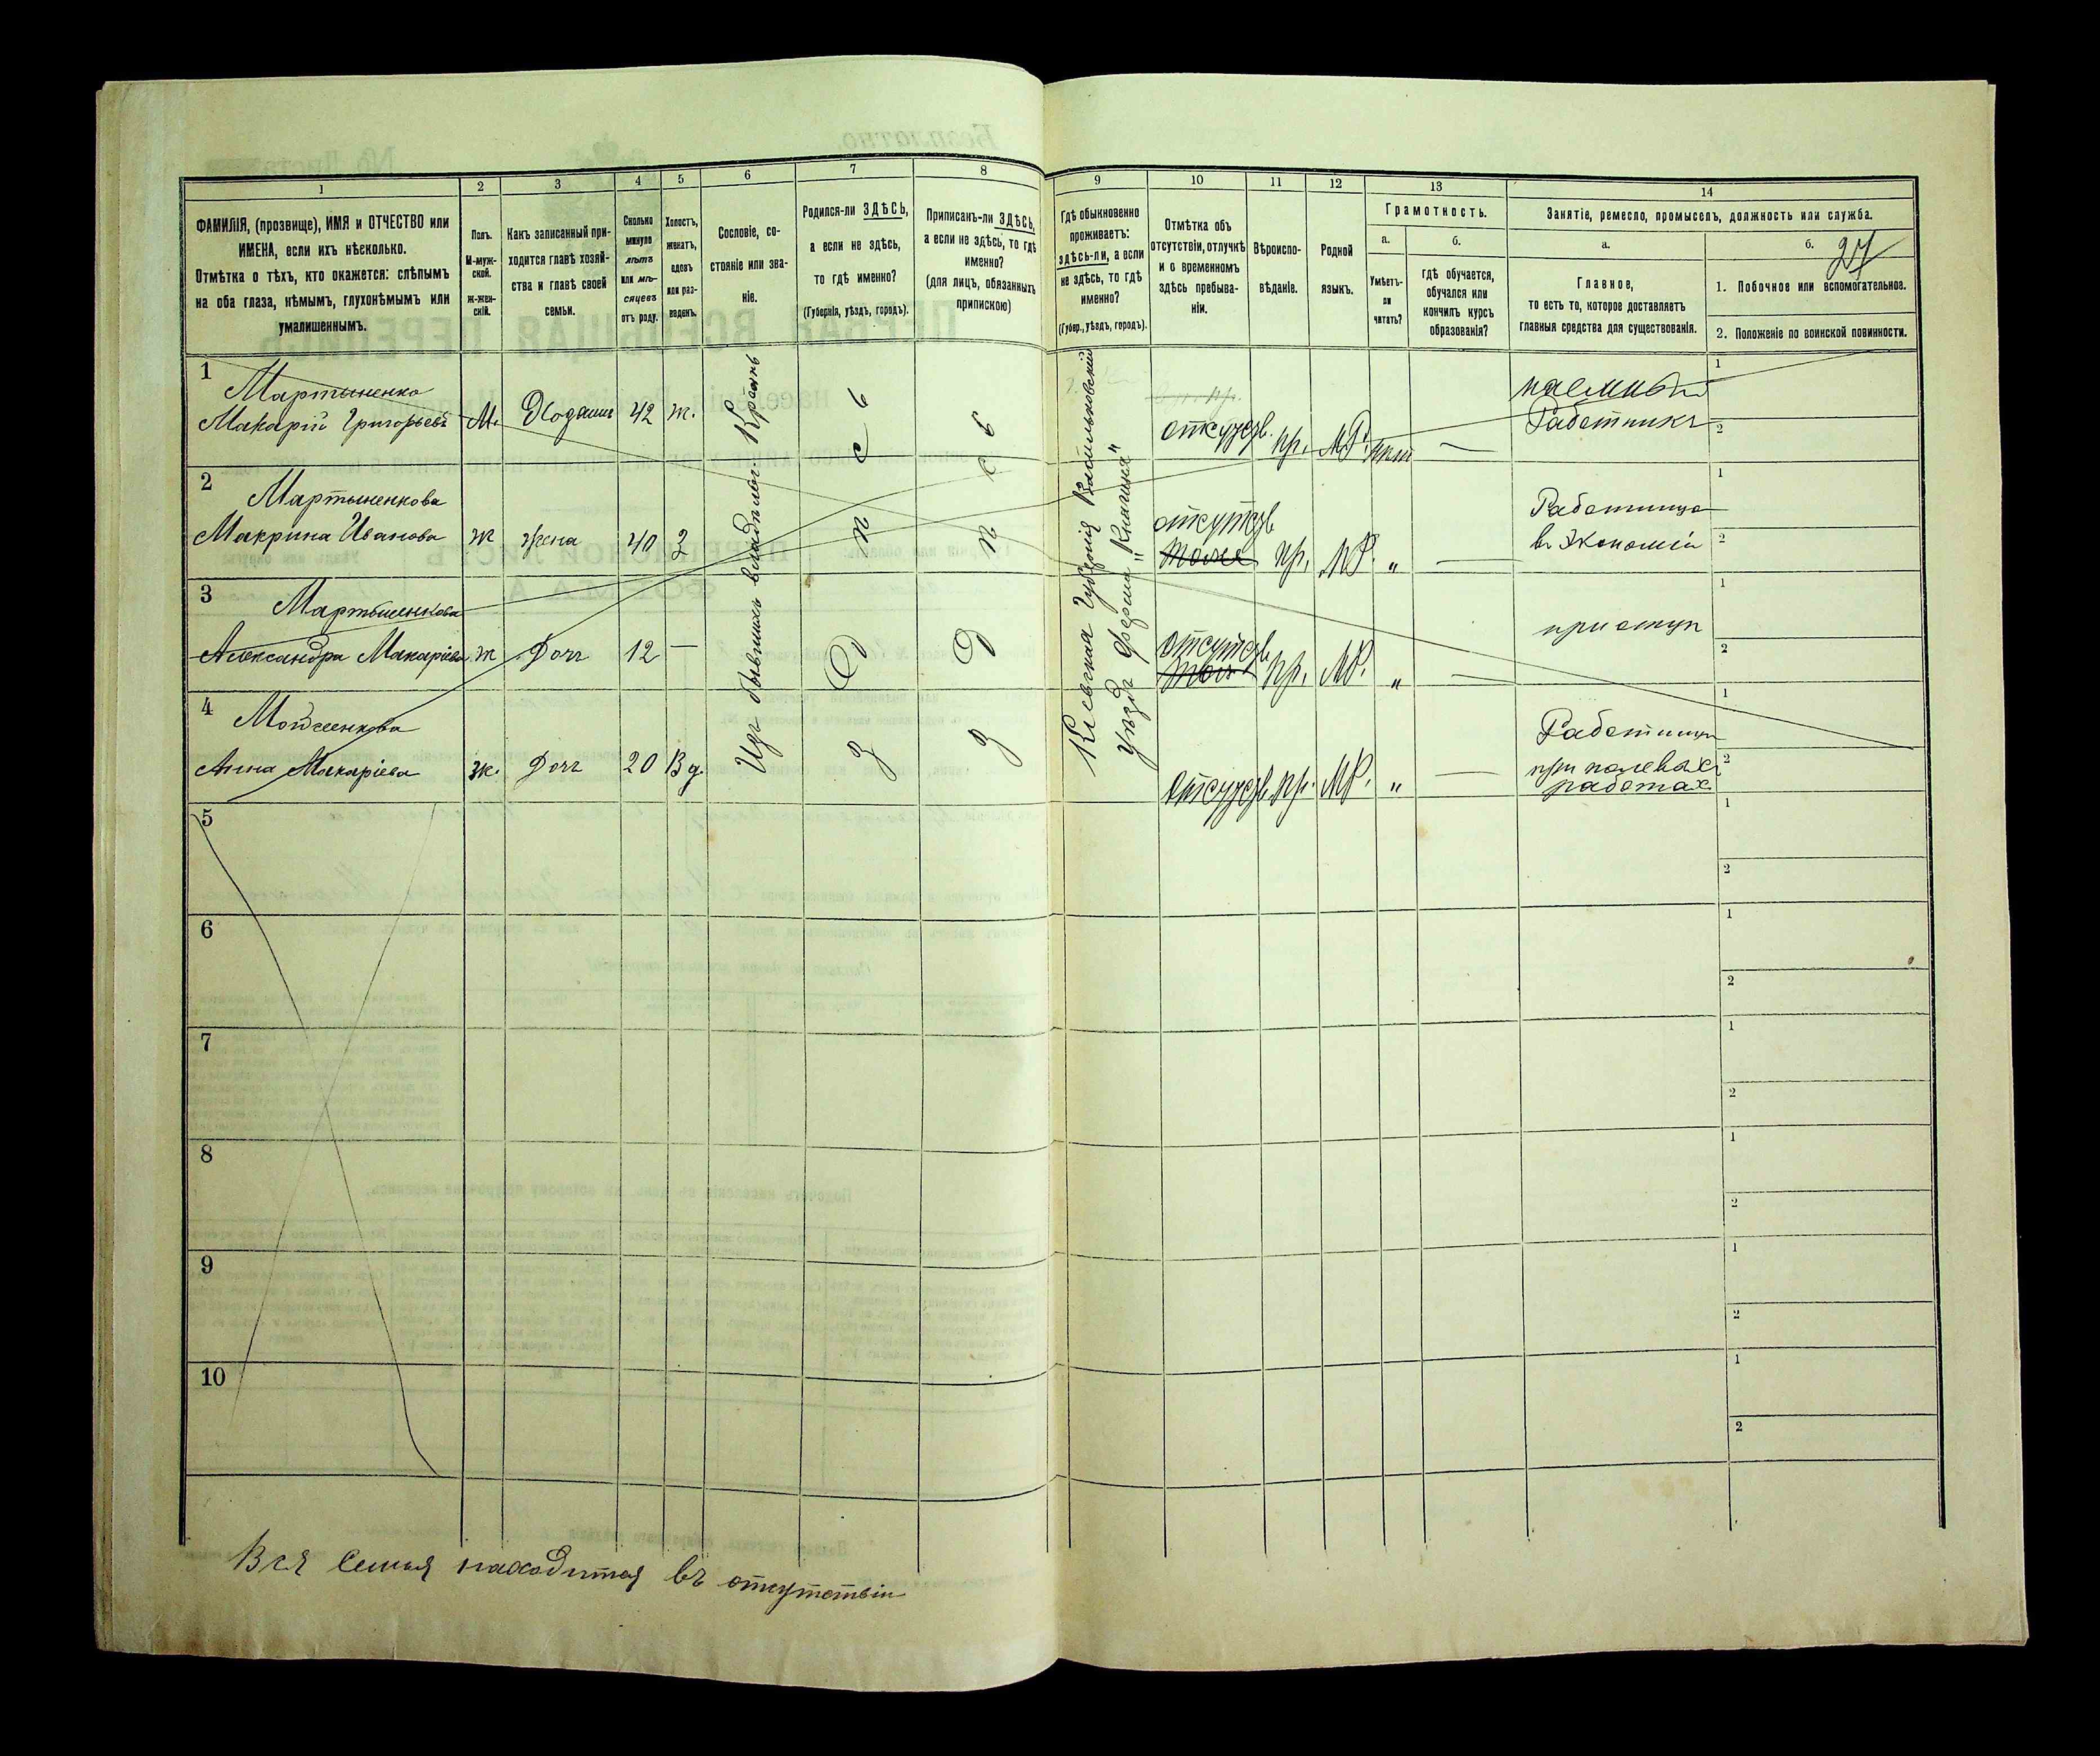 1
2
3
4
5
6
7
8
ФАМИЛІЯ, (прозвище), ИМЯ и ОТЧЕСТВО или
ИМЕНА, если ихъ нѣсколько.
Отмѣтка о тѣхъ, кто окажется: слѣпымъ
на оба глаза, нѣмымъ, глухонѣмымъ или
умалишеннымъ.
Полъ.
М-муж-
ской.
Ж-жен-
скій.
Какъ записанный при-
ходится главѣ хозяй-
ства и главѣ своей
семьи.
Сколько
минуло
лѣтъ
или мѣ-
сяцевъ
отъ роду.
Холостъ,
женатъ,
вдовъ
или раз-
веденъ.
Сословіе, со-
стояніе или зва-
ніе.
Родился-ли ЗДѢСЬ,
а если не здѣсь,
то гдѣ именно?
(Губернія, уѣздъ, городъ).
Приписанъ-ли ЗДѢСЬ,
а если не здѣсь, то гдѣ
именно?
(для лицъ, обязанныхъ
припискою)
9
10
11
12
13
14
Гдѣ обыкновенно
проживаетъ:
здѣсь-ли, а если
не здѣсь, то гдѣ
именно?
(Губер., уѣздъ, городъ).
Отмѣтка объ
отсутствіи, отлучкѣ
и о временномъ
здѣсь пребыва-
ніи.
Вѣроиспо-
вѣданіе.
Родной
языкъ.
Грамотность.
а.
Умѣетъ-
ли
читать?
б.
гдѣ обучается,
обучался или
кончилъ курсъ
образованія?
Занятіе, ремесло, промыселъ, должность или служба.
а.
Главное,
то есть то, которое доставляетъ
главныя средства для существованія.
б.
27
1. Побочное или вспомогательное.
2. Положеніе по воинской повинности.
1
Мартыненко
Макарій Григорьевъ М. Хозяинъ 42 ж.
отсутств. пр. МР. нѣт —
наемный
Работникъ
1
2
2
Мартыненкова
Макрина Иванова Ж жена 40 З
отсутств
тоже пр. МР. „ —
Работница
въ Экономіи
1
2
3
Мартыненкова
Александра Макаріева ж Дочь 12 —
отсутств пр. МР. „ —
при отцѣ
1
2
4
Анна Макаріева ж. Дочь 20 Вд.
отсутств. пр. МР. „ —
Работница
при полевых
работах
1
2
Изъ бывшихъ владѣльч. Крестьянъ
Здѣсь
Здѣсь
Кіевская Губернія Васильковскій
Уѣздъ Ферма „Княгиня"
5
1
2
6
1
2
7
1
2
8
1
2
9
1
2
10
1
2
Вся Семья находится въ отсутствіи